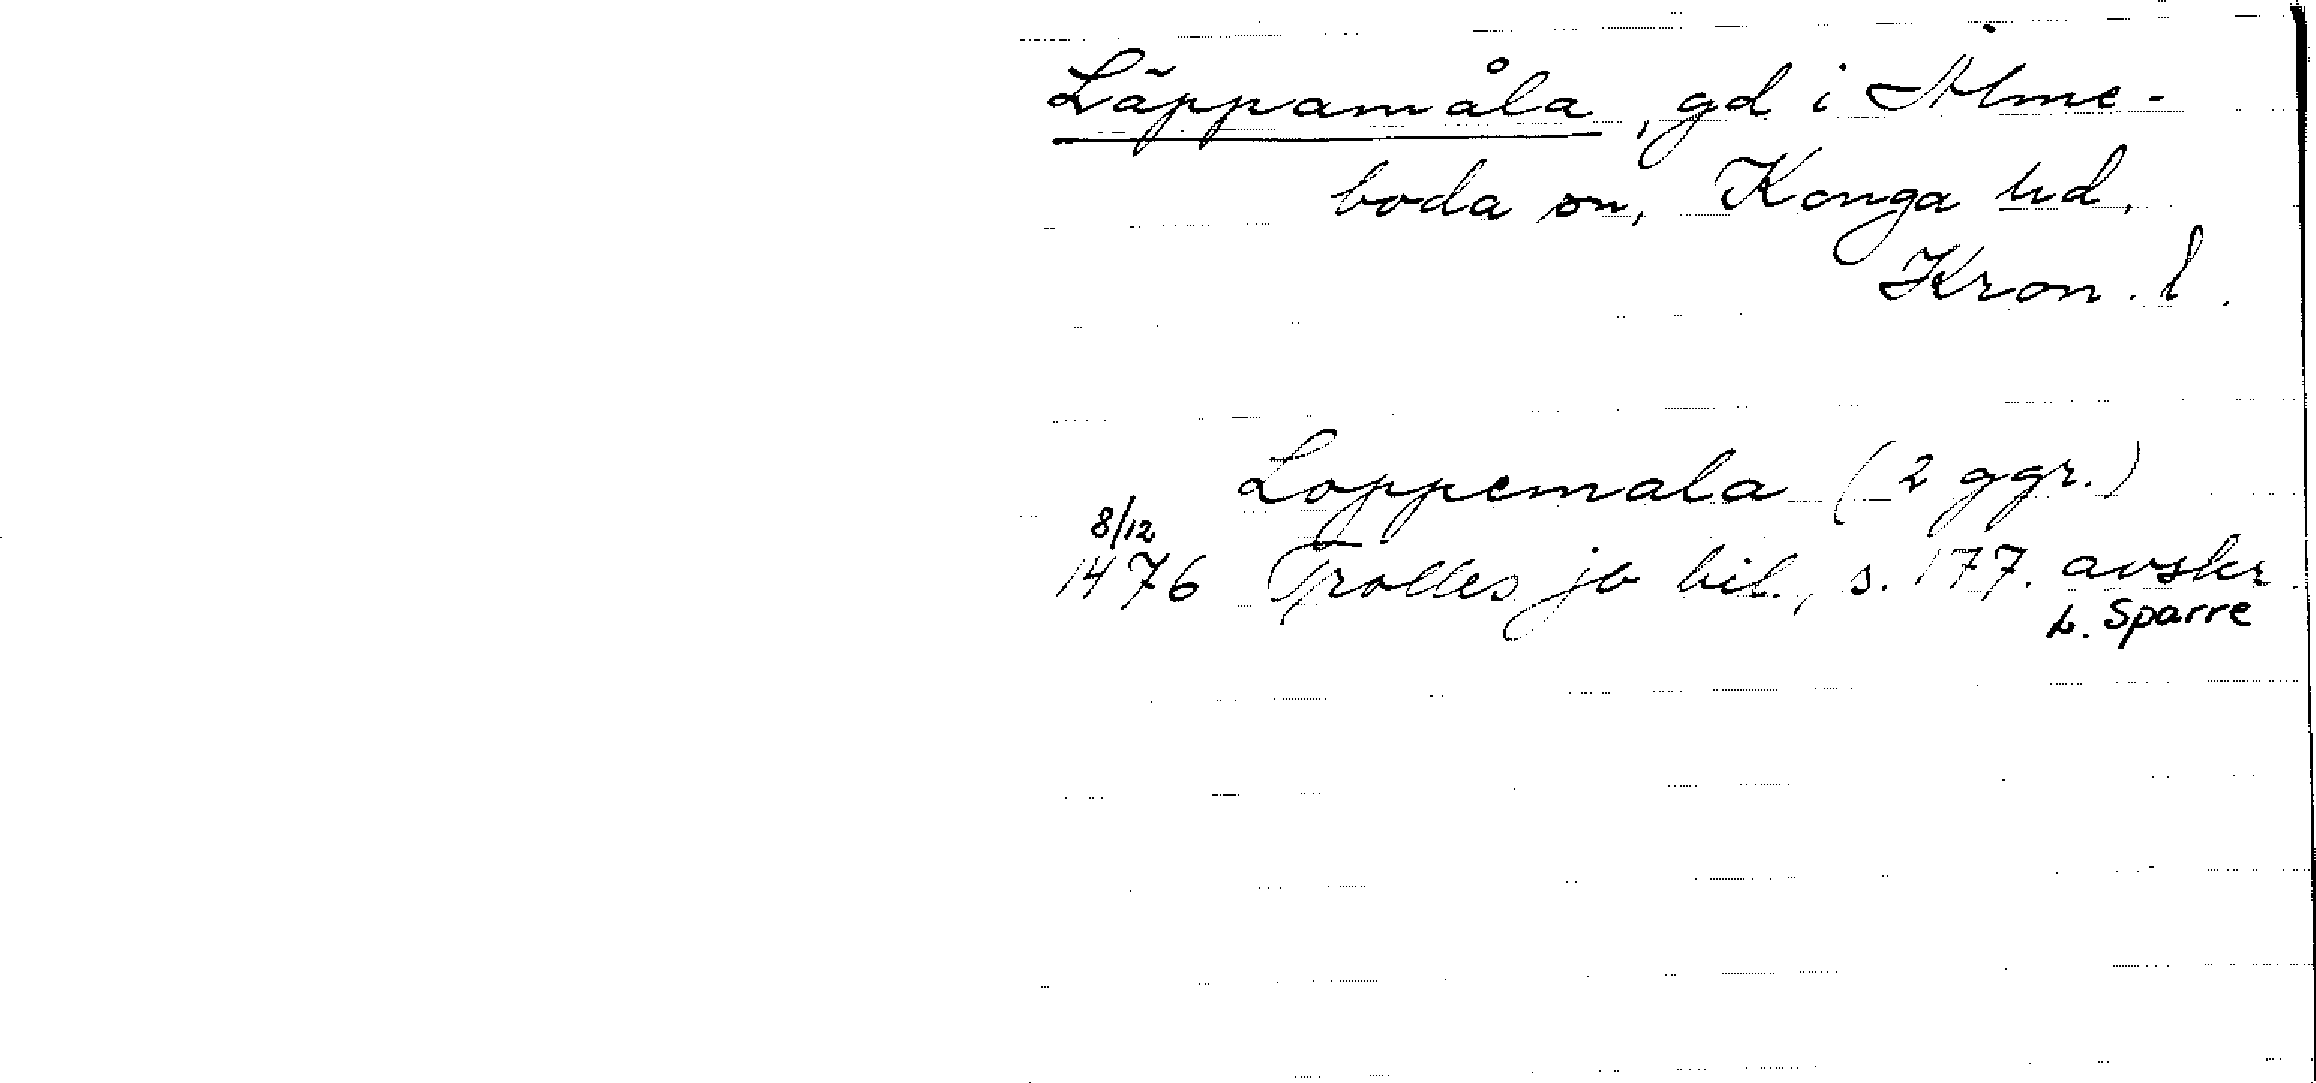 Läppamåla, gd i Älme-
boda sn, Konga hd,
Kron. l.
Loppemala (2 ggr.)
8/12
1476 Trolles jb bil., s. 177. avskr
L. Sparre